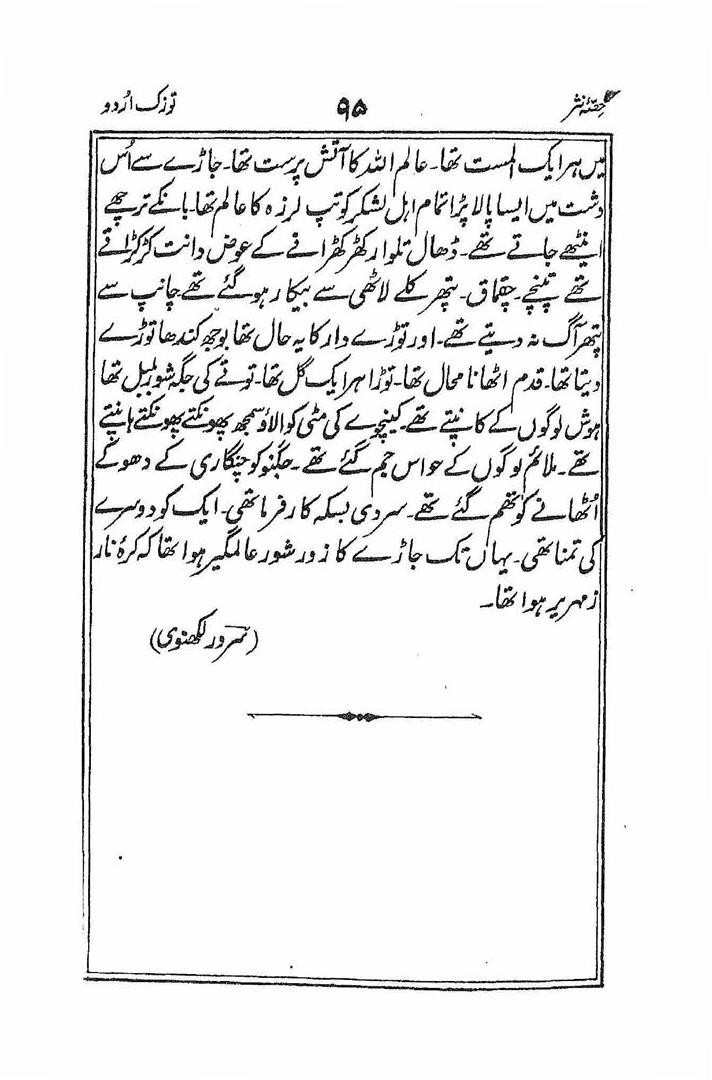 حصّۂ نثر ۹۵ توزک اُردو
میں ہر ایک الست تھا۔ عالم اللہ کا آتش پرست تھا۔ جاڑے سے اُس
دشت میں ایسا پالا پڑا تمام اہل لشکر کو تپ لرزہ کا عالم تھا۔ بانکے ترچھے
اینٹھے جاتے تھے۔ ڈھال تلوار کھڑکھڑانے کے عوض دانت کڑکڑاتے
تھے تپنچے۔ چقماق۔ پتھر کلے لاٹھی سے بیکار ہو گئے تھے چانپ سے
پتھر آگ نہ دیتے تھے۔ اور توڑے دار کا یہ حال تھا بوجھ کندھا توڑے
دیتا تھا۔ قدم اٹھانا محال تھا۔ توڑا ہر ایک گل تھا۔ توتے کی جگہ شور بلبل تھا
ہوش لوگوں کے کانپتے تھے۔ کینچوے کی مٹی کو الاؤ سمجھ پھونکتے پھونکتے ہانپتے
تھے۔ ملائم لوگوں کے حواس جم گئے تھے۔ جگنو کو چنگاری کے دھوکے
اُٹھانے کو تھم گئے تھے۔ سردی بسکہ کارفرما تھی۔ ایک کو دوسرے
کی تمنا تھی۔ یہاں تک جاڑے کا زور شور عالمگیر ہوا تھا کہ کرۂ نار
زمہریر ہوا تھا۔
(سرور لکھنوی)